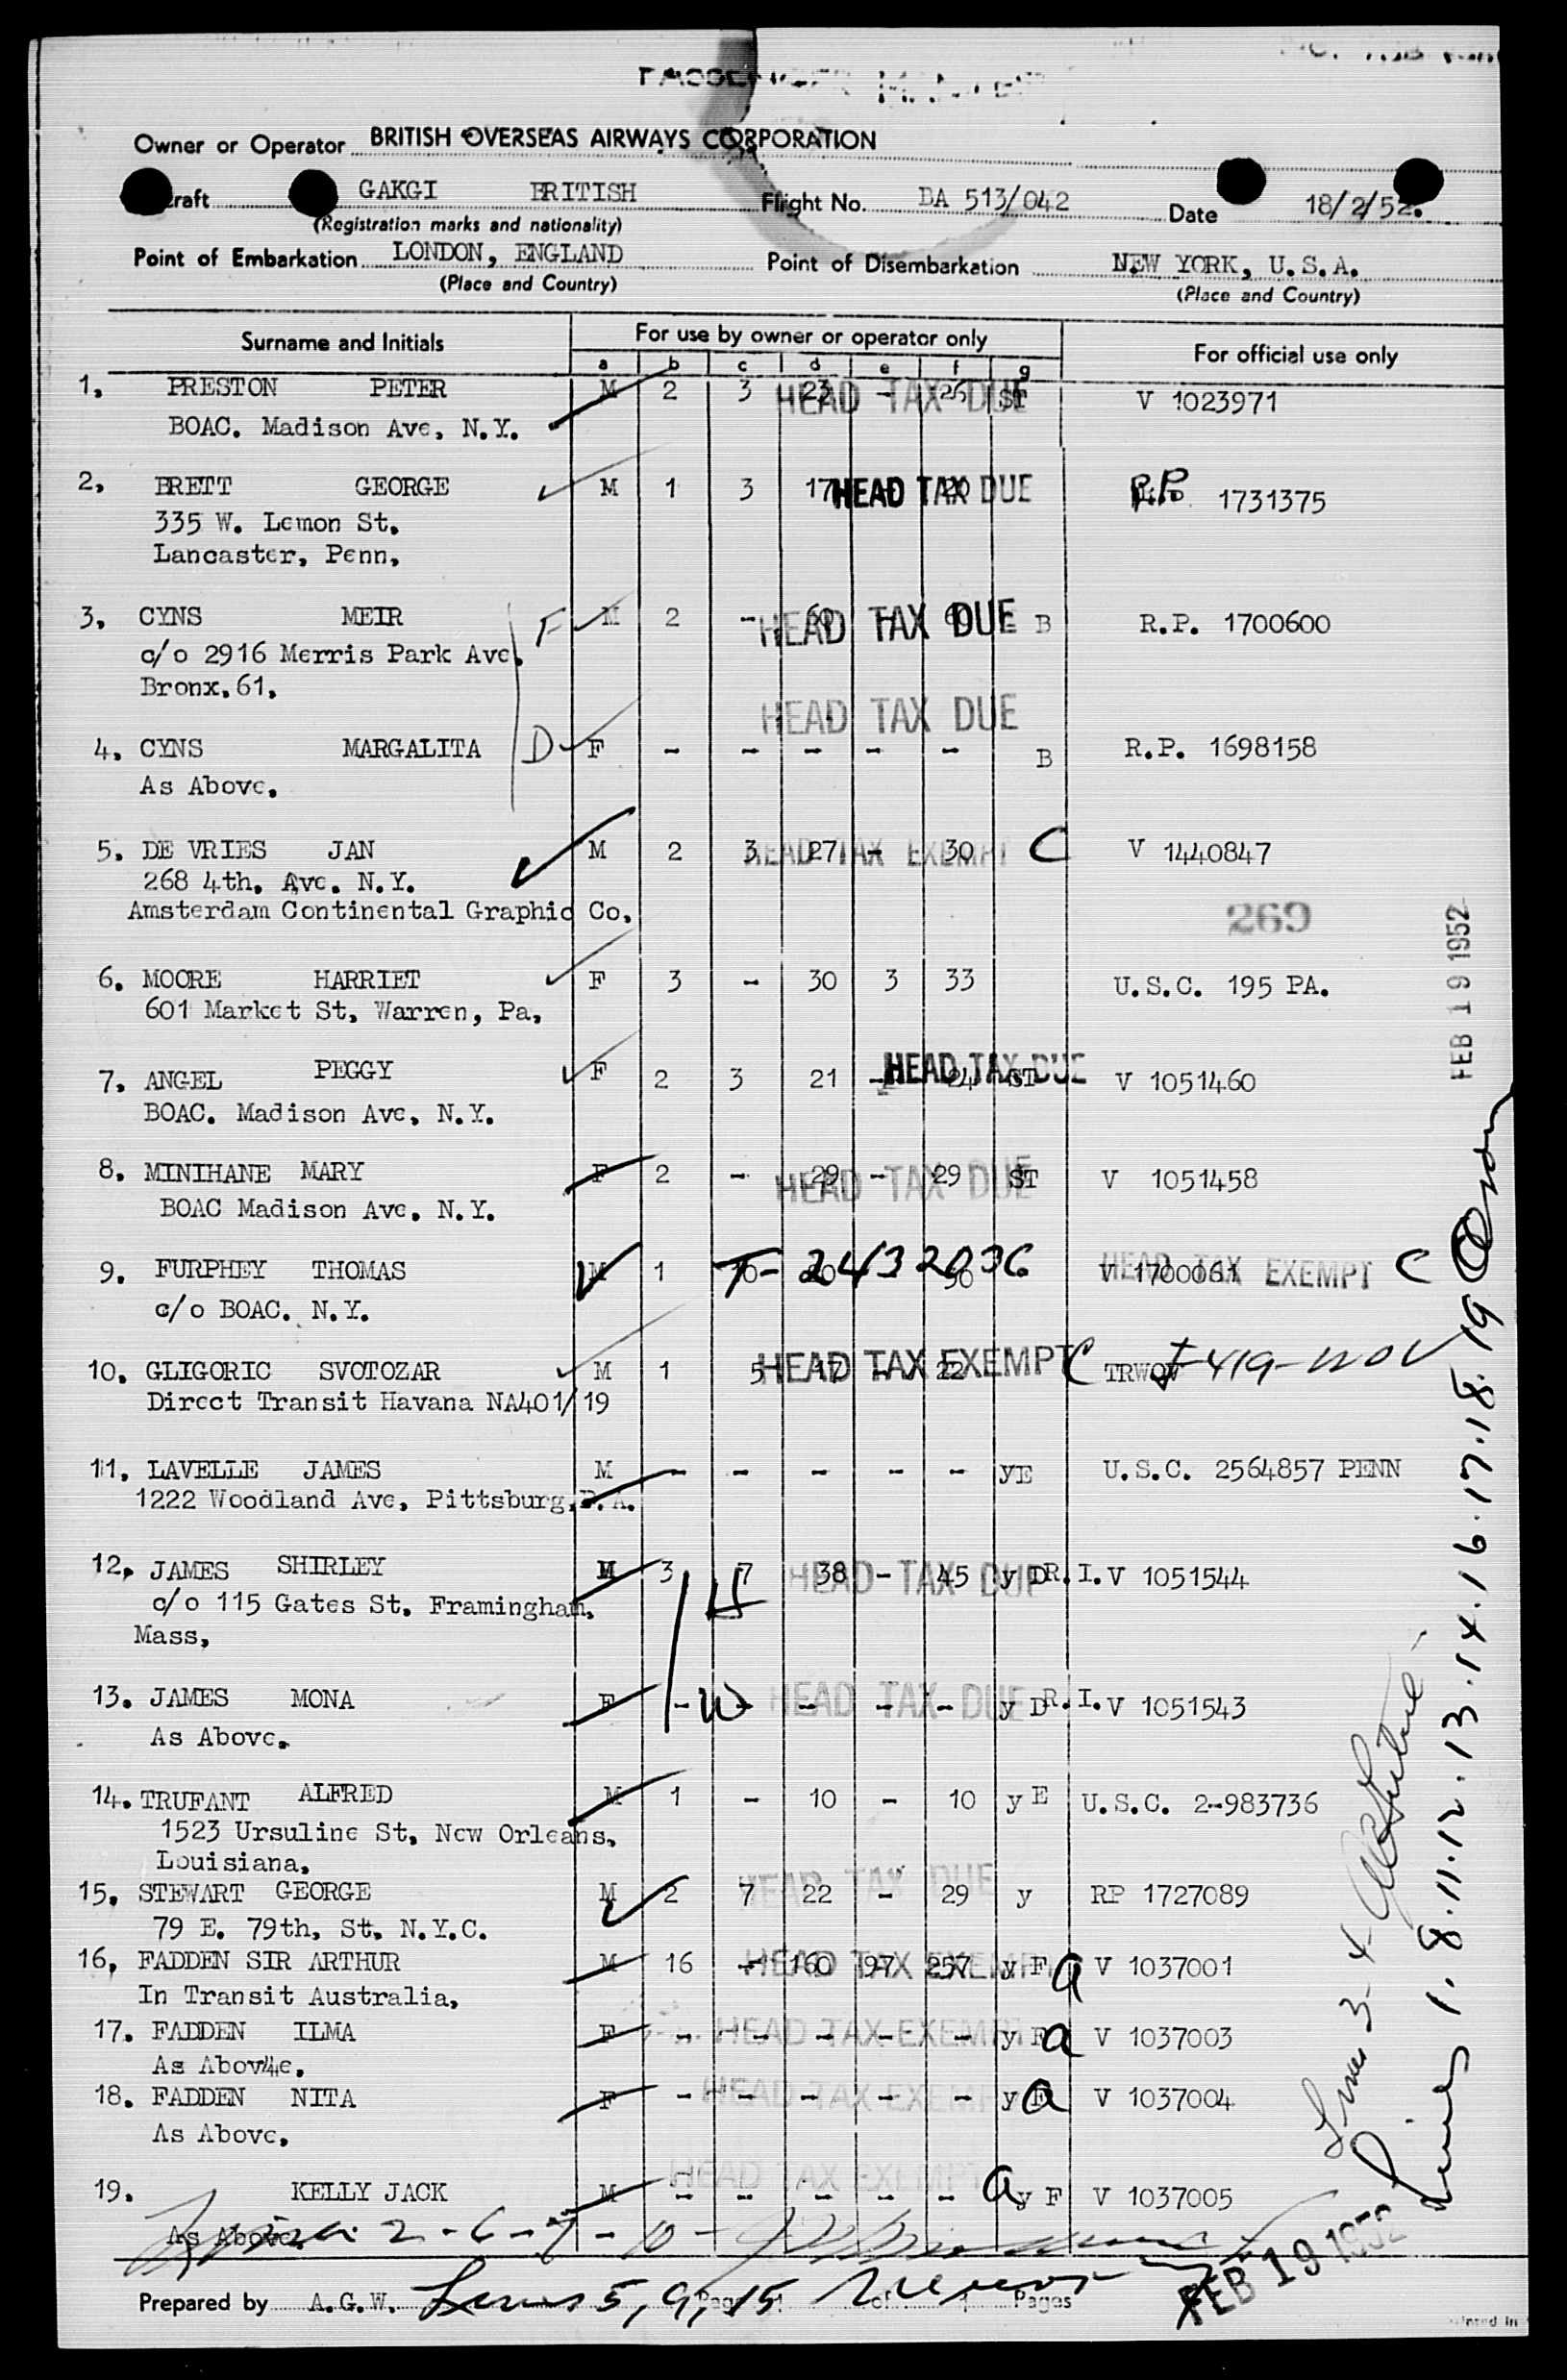 PASSENGER MANIFEST
Owner or Operator BRITISH OVERSEAS AIRWAYS CORPORATION
raft GAKGI BRITISH Flight No. BA 513/042 Date 18/2/52.
(Registration marks and nationality)
Point of Embarkation LONDON, ENGLAND Point of Disembarkation NEW YORK, U.S.A.
(Place and Country) (Place and Country)
Surname and Initials For use by owner or operator only For official use only
a b c d e f g
1. PRESTON PETER M 2 3 23 - 26 ST V 1023971
HEAD TAX DUE
BOAC. Madison Ave, N.Y.
2. BRETT GEORGE M 1 3 17 20 R.P. 1731375
HEAD TAX DUE
335 W. Lemon St.
Lancaster, Penn,
3. CYNS MEIR F M 2 - 60 - 60 B R.P. 1700600
HEAD TAX DUE
c/o 2916 Merris Park Ave.
Bronx.61,
HEAD TAX DUE
4. CYNS MARGALITA D F - - - - - B R.P. 1698158
As Above.
5. DE VRIES JAN M 2 3 27 - 30 C V 1440847
HEAD TAX EXEMPT
268 4th. Ave. N.Y.
Amsterdam Continental Graphic Co.
269
FEB 19 1952
6. MOORE HARRIET F 3 - 30 3 33 U.S.C. 195 PA.
601 Market St, Warren, Pa,
7. ANGEL PEGGY F 2 3 21 - 24 ST V 1051460
HEAD TAX DUE
BOAC. Madison Ave, N.Y.
8. MINIHANE MARY F 2 - 29 - 29 ST V 1051458
HEAD TAX DUE
BOAC Madison Ave. N.Y.
9. FURPHEY THOMAS M 1 T-2432036 V 1700061 C
HEAD TAX EXEMPT
c/o BOAC. N.Y.
10. GLIGORIC SVOTOZAR M 1 5 17 - 22 C TRWOV I-419-WOV
HEAD TAX EXEMPT
Direct Transit Havana NA401/19
11. LAVELLE JAMES M - - - - - yE U.S.C. 2564857 PENN
1222 Woodland Ave, Pittsburg, P.A.
12. JAMES SHIRLEY M 3 7 38 - 45 y D R.I. V 1051544
HEAD TAX DUE
H
c/o 115 Gates St. Framingham,
Mass,
13. JAMES MONA F - W - - - - y D R.I. V 1051543
HEAD TAX DUE
As Above.
14. TRUFANT ALFRED M 1 - 10 - 10 y E U.S.C. 2-983736
1523 Ursuline St, New Orleans,
Louisiana.
HEAD TAX DUE
15. STEWART GEORGE M 2 7 22 - 29 y RP 1727089
79 E. 79th, St, N.Y.C.
16, FADDEN SIR ARTHUR M 16 - 160 97 257 y F a V 1037001
HEAD TAX EXEMPT
In Transit Australia,
17. FADDEN ILMA F - - - - - y F a V 1037003
HEAD TAX EXEMPT
As Abov4e.
18. FADDEN NITA F - - - - - y F a V 1037004
HEAD TAX EXEMPT
As Above,
HEAD TAX EXEMPT
19. KELLY JACK M - - - - - a y F V 1037005
As Above.
Lines 2-6-7-10-
Lines 3-4
Lines 1. 8.11.12.13.14.16.17.18.19
FEB 19 1952
Prepared by A.G.W. Lines 5, 9, 15 Page 1 of 1 Pages